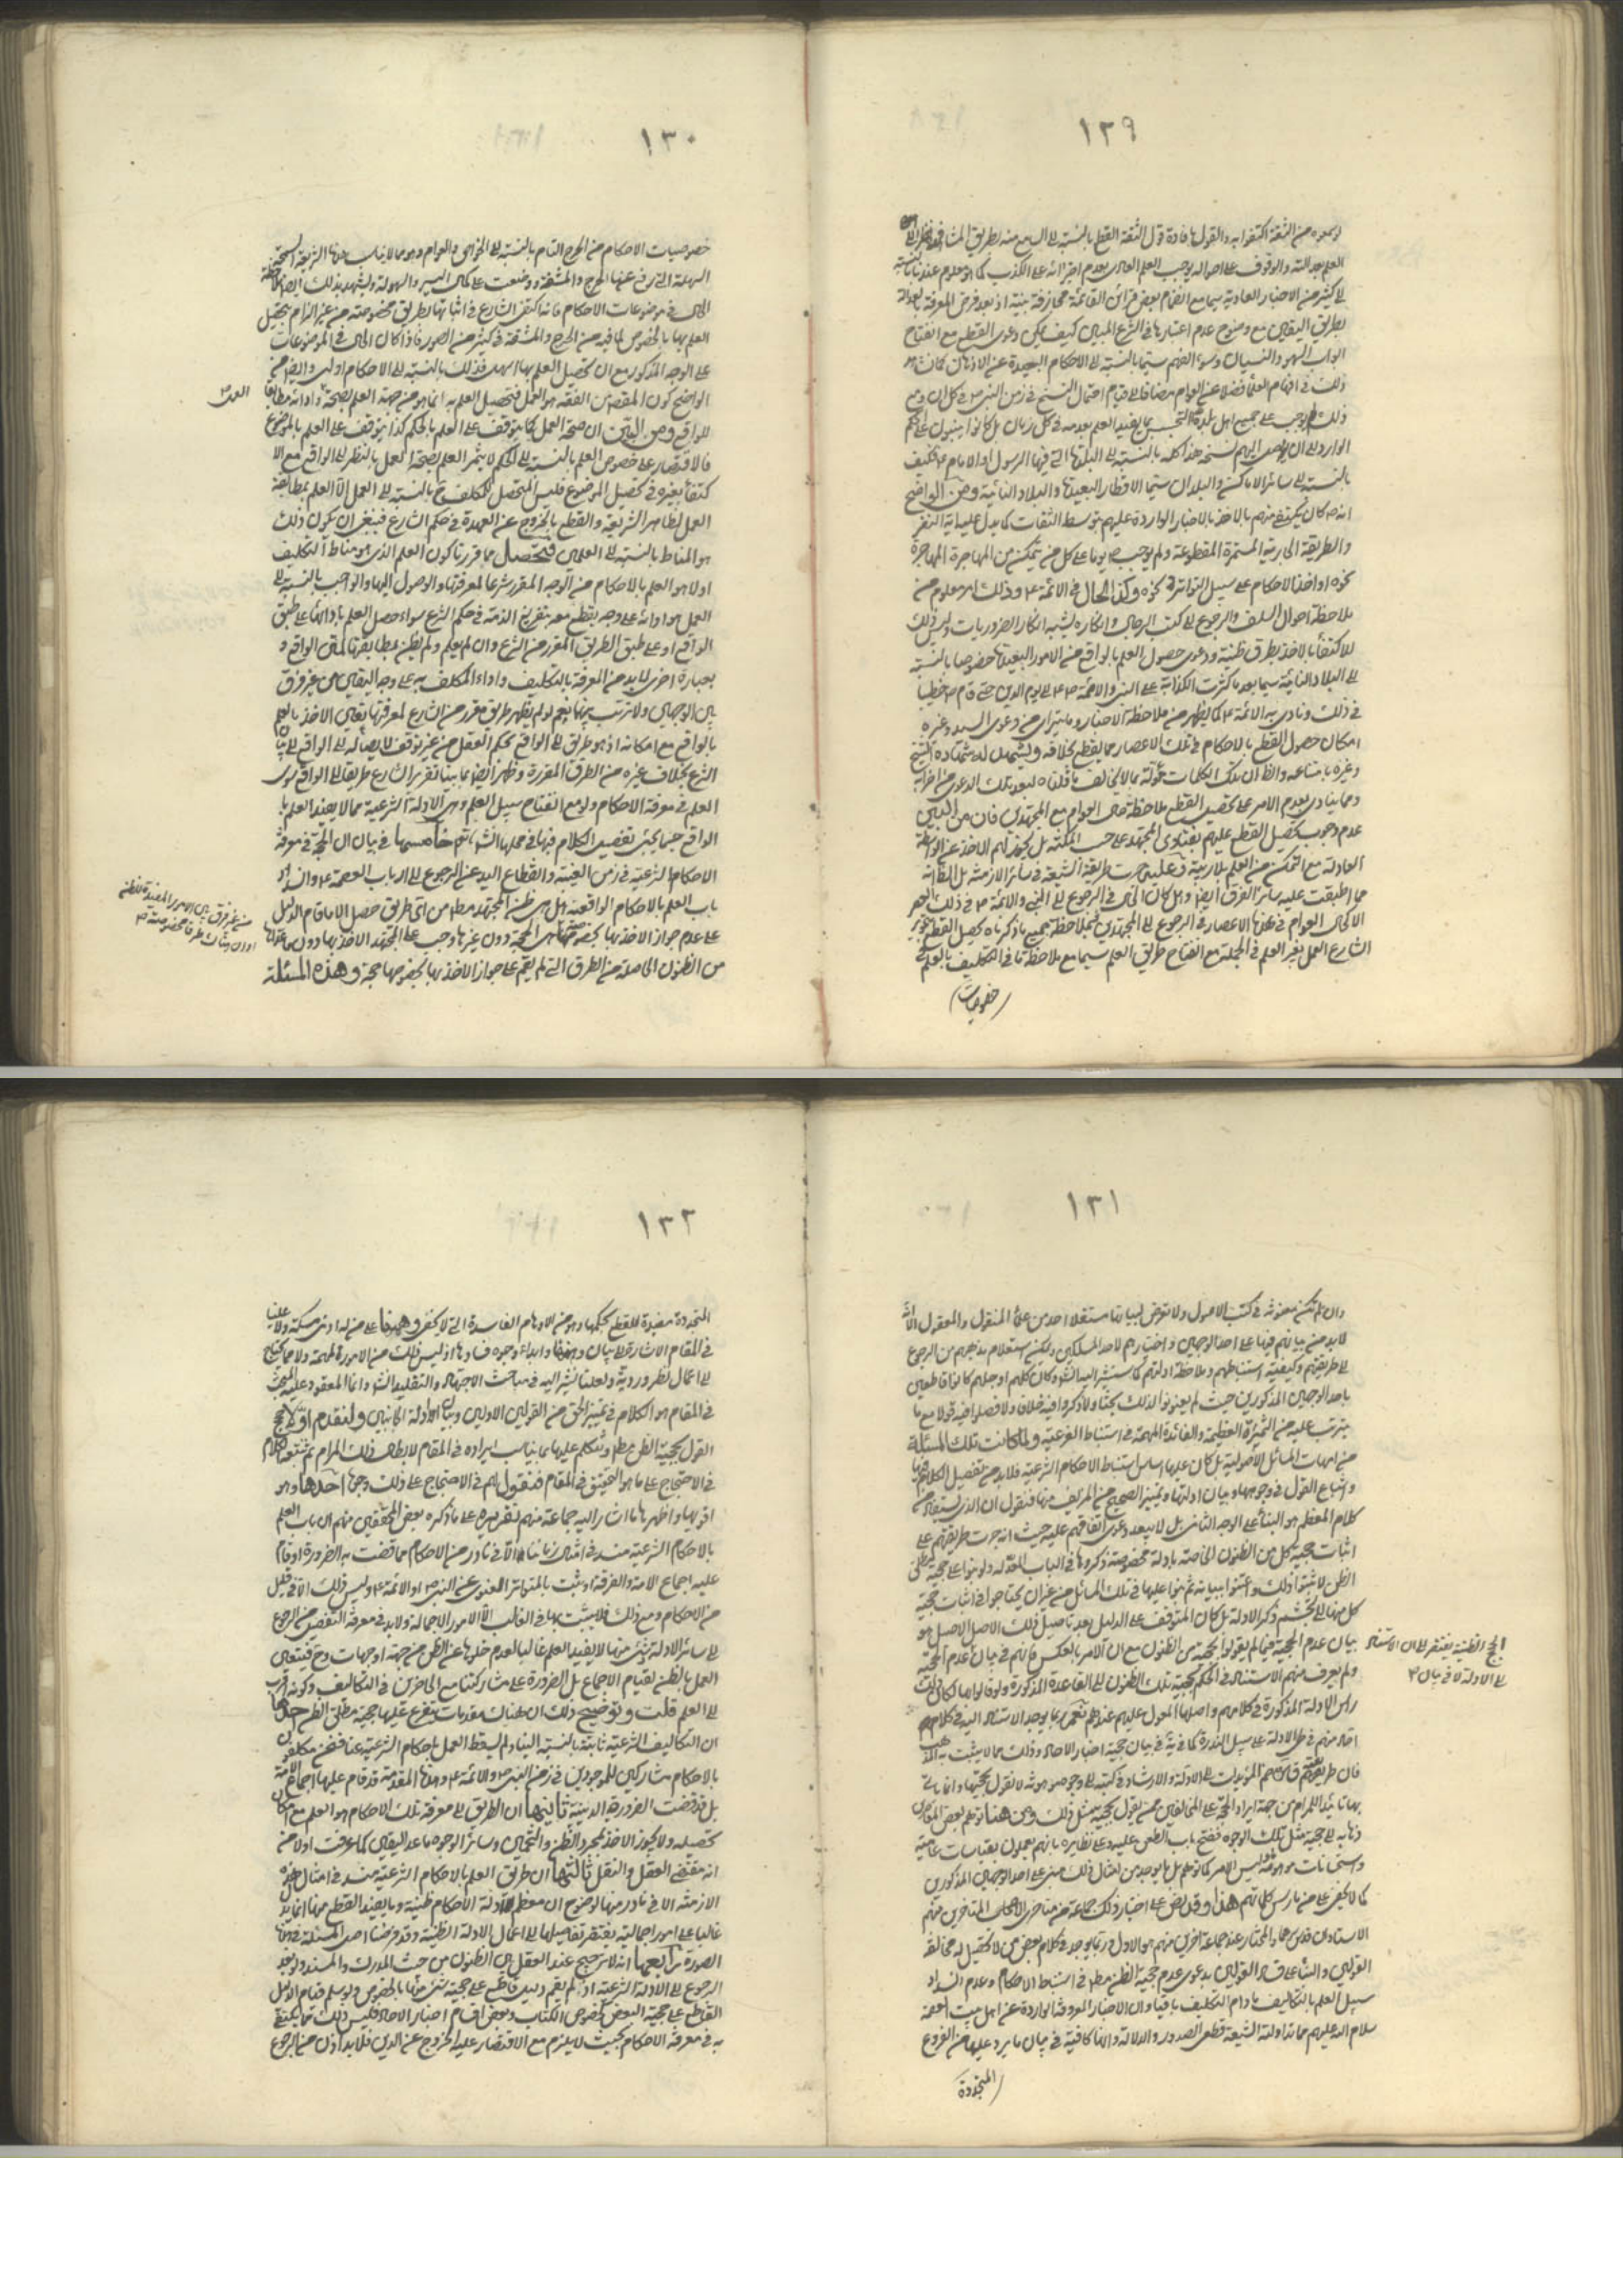 ١٢٩
او سمعوه من الثقة اكتفوا به والقول بافادة قول الثقة القطع بالنسبة الى السامع منه بطريق المشافهة نظرا الى
العلم بعدالته والوقوف على احواله يوجب العلم العادى بعدم اجترائه على الكذب كما هو معلوم عندنا بالنسبة
الى كثير من الاخبار العادية سيما مع انضمام بعض قرائن القائمة مجازفة بينة اذ بعد فرض المعرفة بالعدالة
بطريق اليقين مع وضوح عدم اعتبارها فى الشرع المبين كيف يمكن دعوى القطع مع انفتاح
ابواب السهو والنسيان وسوء الفهم سيما بالنسبة الى الاحكام البعيدة عن الاذهان كما نشاهد
ذلك فى افهام العلماء فضلا عن العوام مضافا الى قيام احتمال النسخ فى زمن النبى ص فى كل ان ومع
ذلك لم يوجب على جميع اهل بلده التجسس بما يفيد العلم بعدمه فى كل زمان بل كانوا يبنون على الحكم
الوارد الى ان يصل اليهم نسخه هذا كله بالنسبة الى البلدة التى فيها الرسول او الامام ع فكيف
بالنسبة الى سائر الاماكن والبلدان سيما الاقطار البعيدة والبلاد النائية ومن الواضح
انه ص كان يكتفى منهم بالاخذ بالاخبار الواردة عليهم بتوسط الثقات كما يدل عليه اية النفر
والطريقة الجارية المستمرة المقطوعة ولم يوجب يوما على كل من يتمكن من المهاجرة المهاجرة
نحوه او اخذ الاحكام على سبيل التواتر و نحوه وكذا الحال فى الائمة ع وذلك امر معلوم من
ملاحظة احوال السلف والرجوع الى كتب الرجال وانكاره يشبه انكار الضروريات وليس ذلك
الا للاكتفاء بالاخذ بطرق ظنية ودعوى حصول العلم بالواقع من الامور البعيدة خصوصا بالنسبة
الى البلاد النائية سيما بعد ما كثرت الكذابة على النبى والائمة الى يوم الدين حتى قام خطيبا
فى ذلك ونادى به الائمة ع كما يظهر من ملاحظة الاخبار وما يتراى من دعوى السيد وغيره
امكان حصول القطع بالاحكام فى تلك الاعصار مما يقطع بخلافه ويشهد له شهادة الشيخ
وغيره بامتناعه والظ ان تلك الكلمات مأولة بما لا يخالف ما قلناه لبعد تلك الدعوى
ومما ينادى بعدم الامر على تحصيل القطع ملاحظة حال العوام مع المجتهدين فان من البين
عدم وجوب تحصيل القطع عليهم بفتاوى المجتهد على حسب المكنة بل يجوز لهم الاخذ عن الواسطة
العادلة مع التمكن من العلم بلا ريبة وعليه جرت طريقة الشيعة فى سائر الازمنة بل الظ انه
مما اطبقت عليه سائر الفرق ايضا وهل كان الحال فى الرجوع الى النبى والائمة ع فى ذلك العصر
الا كحال العوام فى هذه الاعصار فى الرجوع الى المجتهدين فبملاحظة جميع ما ذكرناه يحصل القطع بتجويز
الشارع العمل بغير العلم فى الجملة مع انفتاح طريق العلم سيما مع ملاحظة ما فى التكليف بالعلم فى
خصوصيات
١٣٠
خصوصيات الاحكام من الحرج التام بالنسبة الى الخواص والعوام وهو مما لا يناسب هذه الشريعة السمحة
السهلة التى رفع عنها الحرج والمشقة ووضعت على كمال اليسر والسهولة ويشهد بذلك ايضا ملاحظة
الحال فى موضوعات الاحكام فانه اكتفى الشارع فى اثباتها بطريق مخصوصة من غير الزام بتحصيل
العلم بها بالخصوص لما فيه من الحرج والمشقة فى كثير من الصور فاذا كان الحال فى الموضوعات
على الوجه المذكور مع ان تحصيل العلم بها اسهل فذلك بالنسبة الى الاحكام اولى وايضا من
الواضح كون المقص من الفقه هو العمل فتحصيل العلم به انما هو من جهة العلم بصحة وادائه مطابقا
العمل
للواقع ومن البين ان صحة العمل كما يتوقف على العلم بالحكم كذا يتوقف على العلم بالموضوع
فالاقتصار على خصوص العلم بالنسبة الى الحكم لا يثمر العلم بصحة العمل بالنظر الى الواقع مع الا
كتفاء بغيره فى تحصيل الموضوع فليس المتحصل للمكلف ح بالنسبة الى العمل الا العلم بمطابقة
العمل لظاهر الشريعة والقطع بالخروج عن العهدة فى حكم الشارع فينبغى ان يكون ذلك
هو المناط بالنسبة الى العلمين فتحصل مما قررنا كون العلم الذى هو مناط التكليف
اولا هو العلم بالاحكام من الوجه المقرر شرعا لمعرفتها والوصول اليها والواجب بالنسبة الى
العمل هو ادائه على وجه يقطع معه بتفريغ الذمة فى حكم الشرع سواء حصل العلم بادائها على طبق
الواقع او على طبق الطريق المقرر من الشرع وان لم يعلم ولم يظن بمطابقتها لمتن الواقع و
بعبارة اخرى لا بد من المعرفة بالتكليف واداء المكلف به على وجه اليقين من غير فرق
بين الوجهين ولا ترتب بينهما نعم لو لم يظهر طريق مقرر من الشارع لمعرفتها تعين الاخذ بالعلم
بالواقع مع امكانه اذ هو طريق الى الواقع بحكم العقل من غير توقف لايصاله الى الواقع الى بيان
الشرع بخلاف غيره من الطرق المقررة وظهر ايضا بما بينا تقرير الشارع طريقا الى الواقع سوى
العلم فى معرفة الاحكام ولو مع انفتاح سبيل العلم وهى الادلة الشرعية مما لا يفيد العلم با
الواقع حسبما يجئ تفصيل الكلام فيها فى محلها انش تعم خامسها فى بيان ان الحجة فى معرفة
الاحكام الشرعية فى زمن الغيبة وانقطاع اليد عن الرجوع الى ارباب العصمة ع وانسداد
باب العلم بالاحكام الواقعية هل هى ظن المجتهد مطم من اى طريق حصل الا ما قام الدليل
من غير فرق بين الامور المفيدة للظن
او ان هناك طرقا مخصوصة
على عدم جواز الاخذ بها بخصوصها هى الحجة دون غيرها وجب على المجتهد الاخذ بها دون ما عداها
من الظنون الحاصلة من الطرق التى لم يقم على جواز الاخذ بها بخصوصها حجة وهذه المسئلة
١٣١
وان لم تكن معنونة فى كتب الاصول ولا تعرض لبيانها مستقلا احد من علماء المنقول والمعقول الا انه
لا بد من بنائهم فيها على احد الوجهين واختيارهم لاحد المسلكين ويمكن استعلام مذهبهم من الرجوع
الى طريقتهم وكيفية استنباطهم وملاحظة ادلتهم كما سنشير اليه انش وكان كلهم او جلهم كانوا قاطعين
باحد الوجهين المذكورين حيث لم يعنونوا لذلك بحثا ولا ذكروا فيه خلافا ولا فصلوا فيه قولا مع ما
يترتب عليه من الثمرة العظيمة والفائدة المهمة فى استنباط الفرعية ولما كانت تلك المسئلة
من امهات المسائل الاصولية بل كان عليها اساس استنباط الاحكام الشرعية فلا بد من تفصيل الكلام فيها
واشباع القول فى وجوهها وبيان ادلتها وتمييز الصحيح من المزيف منها فنقول ان الذى يستفاد من
كلام المعظم هو البناء على الوجه الثانى بل لا يبعد دعوى اتفاقهم عليه حيث انه جرت طريقتهم على
اثبات حجية كل من الظنون الخاصة بادلة مخصوصة ذكروها فى الباب المعد له ولو بنوا على حجية مطلق
الظن لاثبتوا ذلك واعتنوا ببيانه ثم بنوا عليها فى تلك المسائل من غير ان يحتاجوا فى اثبات حجية
كل منها الى تجشم ذكر الادلة بل كان المتوقف على الدليل بعد تاصيل ذلك الاصل الاصيل هو
بيان عدم الحجية فيما لم يقولوا بحجيته من الظنون مع ان الامر بالعكس فانهم فى بيان عدم الحجية
الحجج الظنية يفتقر الى الاستناد
الى الادلة لا فى بيان
ولم يعرف منهم الاستناد فى الحكم بحجية تلك الظنون الى القاعدة المذكورة ولو قالوا بها لكان ذلك
راس الادلة المذكورة فى كلامهم واصلها المعول عليهم عندهم نعم ربما يوجد الاستناد اليه فى كلام
احاد منهم فى طى الادلة على سبيل الندرة كما فى يه فى بيان حجية اخبار الاحاد وذلك مما لا يثبت به المذهب
فان طريقتهم ضم المؤيدات الى الادلة والارشاد فى كتبه الى وجوه موهونة لا نقول بحجيتها وانما ياتى
بها تاييدا للمرام من جهة ايراد الحجة على المخالفين ممن يقول بحجية مثل ذلك ومن هنا توهم بعض القاصرين
ذهابه الى حجية مثل تلك الوجوه ففتح باب الطعن عليه وعلى نظايره بانهم يعملون بقياسات عامية
واستحسانات موهونة وليس الامر كما توهم بل ما يوجد من امثال ذلك مبنى على احد الوجهين المذكورين
كما لا يخفى على من مارس كلماتهم هذا وقد نص على اختيار ذلك جماعة من متاخرى الاصحاب المتاخرين منهم
الاستادان قدس سرهما والمختار عند جماعة اخرين منهم هو الاول وربما يوجد فى كلام بعض من لا تحصيل له مخالفة
القولين والبناء على فساد القولين بدعوى عدم حجية الظن مطم فى استنباط الاحكام وعدم انسداد
سبيل العلم بالتكاليف ما دام التكليف باقيا وان الاخبار المعروفة الواردة عن اهل بيت العصمة
سلام الله عليهم مما تداولته الشيعة قطعى الصدور والدلالة وانها كافية فى بيان ما يرد علينا من الفروع
المتجددة
١٣٢
المتجددة مفيدة للقطع بحكمها وهو من الاوهام الفاسدة التى لا يخفى وهنها على من له ادنى مسكة ولا علينا
فى المقام الاشارة الى بيان وهنها وابداء وجوه فسادها اذ ليس ذلك من الامور المهمة ولا مما يحتاج
الى اعمال نظر وروية ولعلنا نشير اليه فى مباحث الاجتهاد والتقليد انش وانما المعقود عليه البحث
فى المقام هو الكلام فى تمييز الحق من القولين الاولين وبيان ادلة الجانبين ولنقدم اولا حجج
القول بحجية الظن مطم ونتكلم عليها بما يناسب ايراده فى المقام لابطال ذلك المرام ثم نتبعه بالكلام
فى الاحتجاج على ما هو التحقيق فى المقام فنقول لهم فى الاحتجاج على ذلك وجوه احدها وهو
اقويها واظهرها ما اشار اليه جماعة منهم تقريره على ما ذكره بعض المحققين منهم ان باب العلم
بالاحكام الشرعية منسد فى امثال زماننا الا فى نادر من الاحكام مما قضت به الضرورة او قام
عليه اجماع الامة والفرقة او ثبت بالمتواتر المعنوى عن النبى ص او الائمة ع وليس ذلك الا فى قليل
من الاحكام ومع ذلك فلا يثبت بها فى الغالب الا الامور الاجمالية ولا بد فى معرفة التفصيل من الرجوع
الى سائر الادلة وشئ منها لا يفيد العلم غالبا لعدم خلوها عن الظن من جهة او جهات وح فيتعين
العمل بالظن لقيام الاجماع بل الضرورة على مشاركتنا مع الحاضرين فى التكاليف وكونه اقرب
الى العلم قلت وتوضيح ذلك ان هناك مقدمات يتفرع عليها حجية مطلق الظن احدها
ان التكاليف الشرعية ثابتة بالنسبة الينا ولم يسقط العمل باحكام الشرعية عنا فنحن مكلفون
بالاحكام مشاركين للموجودين فى زمن النبى ص والائمة ع وهذه المقدمة قد قام عليها اجماع الامة
بل قد قضت الضرورة الدينية ثانيها ان الطريق الى معرفة تلك الاحكام هو العلم مع امكان
تحصيله ولا يجوز الاخذ بمجرد الظن والتخمين وسائر الوجوه ما عدا اليقين كما عرفت اولا من
انه مقتضى العقل والنقل ثالثها ان طريق العلم بالاحكام الشرعية منسد فى امثال هذه
الازمنة الا فى نادر منها لوضوح ان معظم ادلة الاحكام ظنية وما يفيد القطع منها انما يدل
غالبا على امور اجمالية يفتقر تفاصيلها الى اعمال الادلة الظنية وقد فرضنا اصل المسئلة فى هذه
الصورة رابعها انه لا ترجيح عند العقل بين الظنون من حيث المدرك والمستند ولو بعد
الرجوع الى الادلة الشرعية اذ لم يقم دليل قاطع على حجية شئ منها بالخصوص ولو سلم قيام الدليل
القاطع على حجية البعض كنصوص الكتاب وبعض اقسام اخبار الاحاد فليس ذلك مما يكتفى
به فى معرفة الاحكام بحيث لا يلزم مع الاقتصار عليه الخروج عن الدين فلا بد اذن من الرجوع